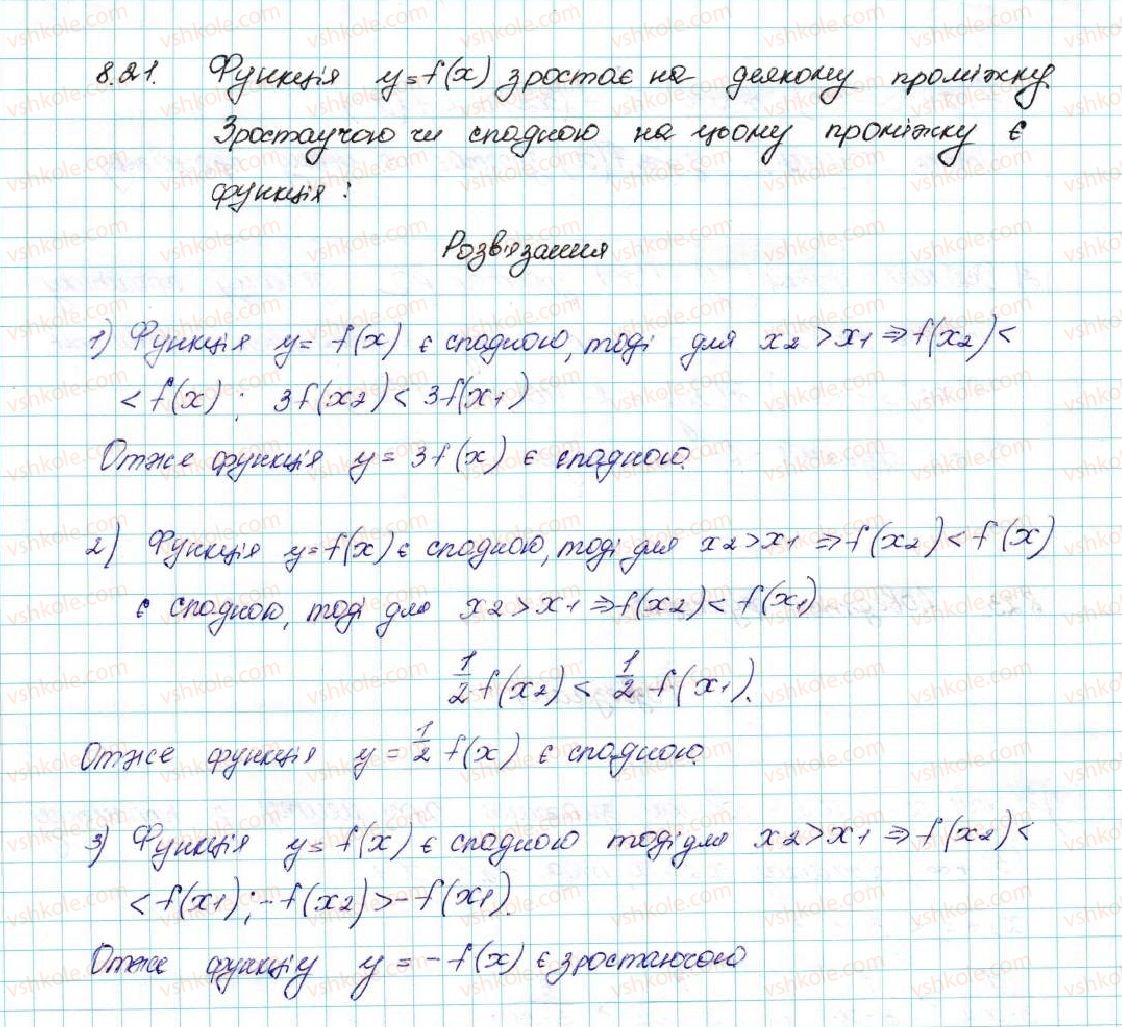 8.21. Функція y=f(x) зростає на деякому проміжку
Зростаучою чи спадною на цьому проміжку є
функція:
Розв'язання
1) Функція y= f(x) є спадною, тоді для x2 >x1 ⇒ f(x2)<
< f(x); 3f(x2)< 3f(x1)
Отже функція y= 3f(x) є спадною.
2) Функція y=f(x) є спадною, тоді для x2>x1 ⇒ f(x2)< f(x)
є спадною, тоді для x2 > x1 ⇒ f(x2)< f(x1)
1/2 f(x2) < 1/2 f(x1).
Отже функція y = 1/2 f(x) є спадною.
3) Функція y= f(x) є спадною тоді для x2>x1 ⇒ f(x2)<
< f(x1); - f(x2) >- f(x1).
Отже функціу y = - f(x) є зростаючою